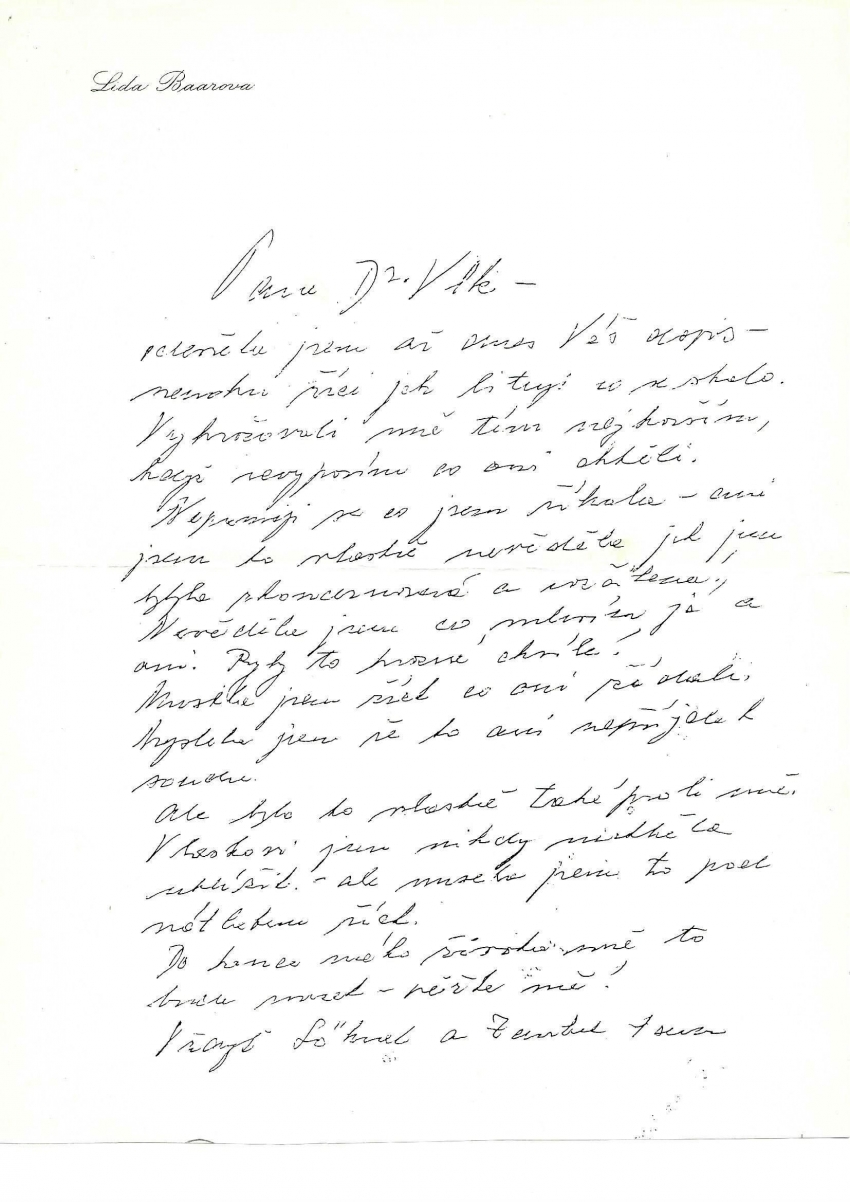 Lida Baarova
Pane Dr. Vlk –
jsem až dnes Váš dopis –
nemohu říci jak lituji co se stalo.
Vyhrožovali mně tím nejhorším,
když nevypovím co oni chtěli.
Nepamuji se co jsem říkala – ani
jsem to vlastně nevěděla jak jsem
byla a
Nevěděla jsem co mluvím já a
oni. Byly to hrozné chvíle!
Musela jsem říct co oni žádali.
Myslela jsem že to ani nepříjde k
soudu.
Ale bylo to vlastně také proti mně.
Vlaskovi jsem nikdy nechtěla
ublížit. – ale musela jsem to pod
nátlakem říct.
Do konce mého života mně to
bude mrzet – věřte mě!
Vždyť Söhnel a